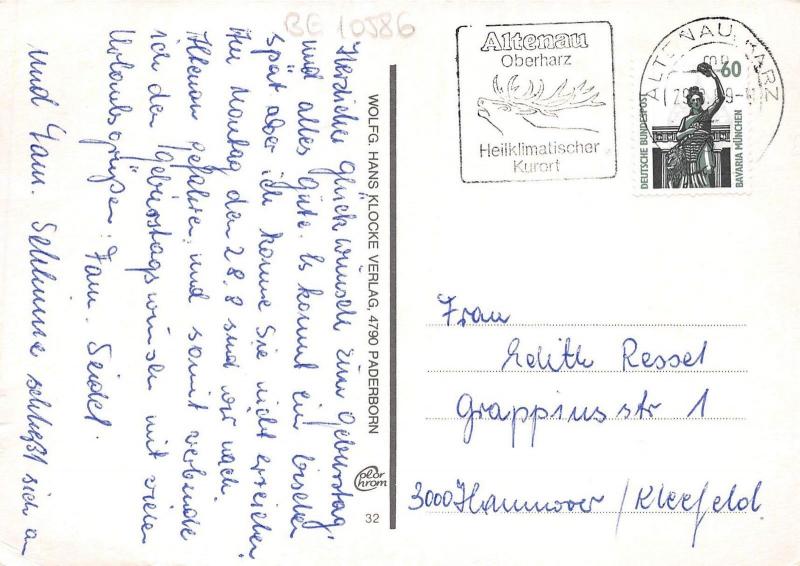 BE 10586
Herzlichen Glückwünsch zum Geburtstag,
und alles Gute. Es kommt ein bischen
spät aber ich konnte Sie nicht erreichen.
Am Montag den 28.8 sind wir nach
Altenau gefahren, und somit verbinde
ich den Geburstagswunsch mit vielen
Urlaubsgrüßen. Fam. Seidel.
und Fam. schließt sich an
WOLFG. HANS KLOCKE VERLAG, 4790 PADERBORN
Color
Chrom
32
Altenau
Oberharz
Heilklimatischer
Kurort
ALTENAU, HARZ
60
DEUTSCHE BUNDESPOST
BAVARIA MÜNCHEN
Frau
Edith Ressel
Grappiusstr 1
3000 Hannover / Kleefeld